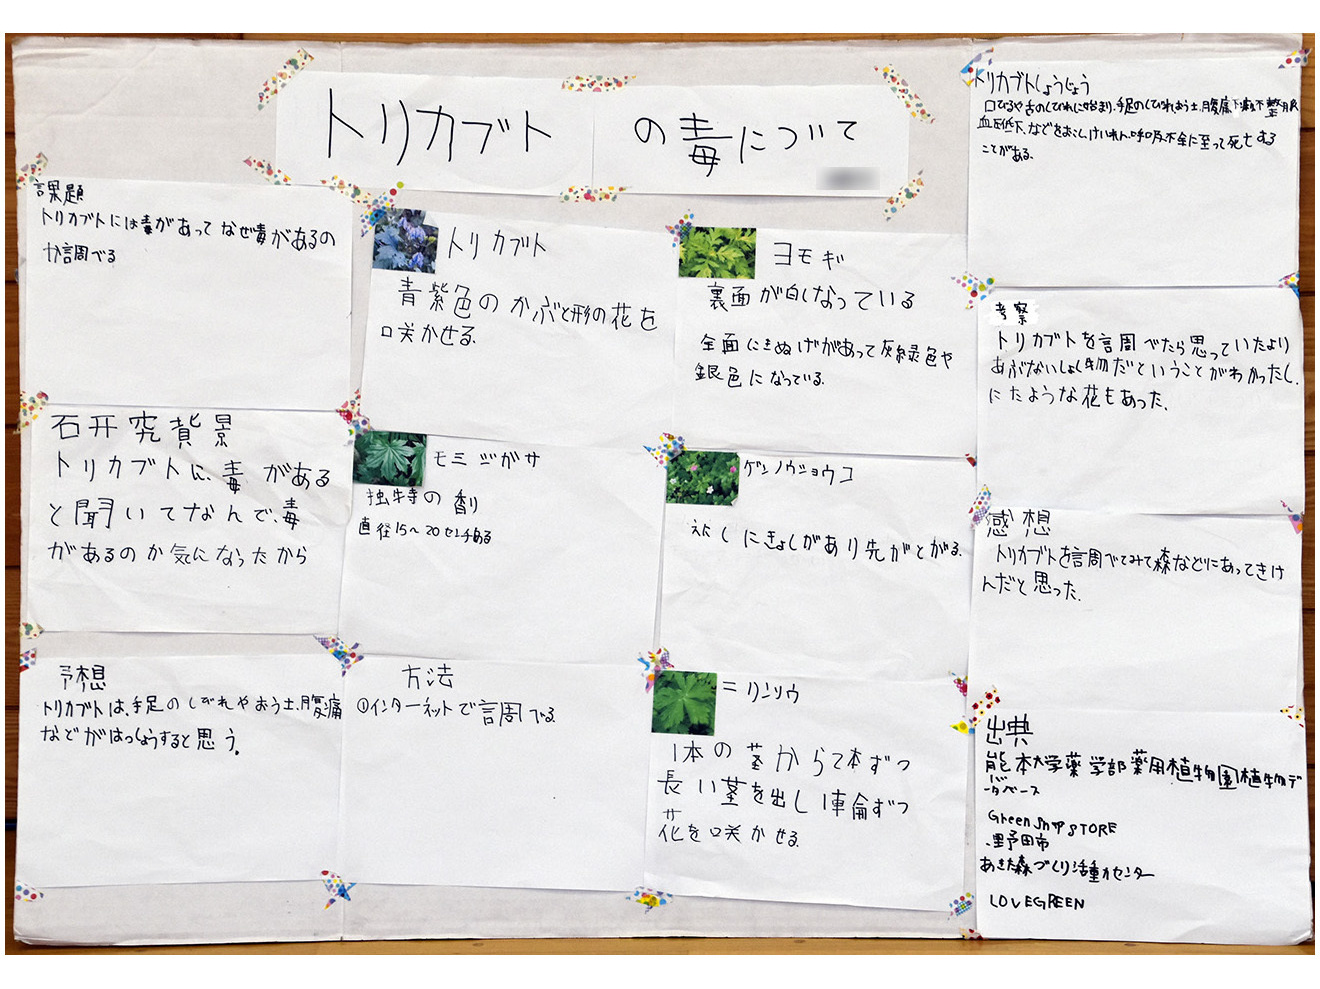 トリカブトの毒について
課題
トリカブトには毒があってなぜ毒があるの
か調べる
研究背景
トリカブトに、毒がある
と聞いてなんで、毒
があるのか気になったから
予想
トリカブトは、手足のしびれやおう土、腹痛
などがはっしょうすると思う。
トリカブト
青紫色のかぶと形の花を
咲かせる。
モミジガサ
独特の香り
直径15〜20センチある
方法
①インターネットで調べる
ヨモギ
裏面が白くなっている
全面にきぬげがあって灰緑色や
銀色になっている。
ゲンノウショウコ
にきょしがあり先がとがる。
ニリンソウ
1本の茎から2本ずつ
長い茎を出し1輪ずつ
花を咲かせる。
トリカブトしょうじょう
口びるや舌のしびれに始まり、手足のしびれ、おう土、腹痛、下痢、不整脈
血圧低下、などをおこし、けいれん、呼吸不全に至って死亡する
ことがある。
考察
トリカブトを調べたら思っていたより
あぶないしょく物だということがわかったし、
にたような花もあった。
感想
トリカブトを調べてみて森などにあってきけ
んだと思った。
出典
熊本大学薬学部薬用植物園植物デ
ータベース
Green snap STORE
・野田市
あきた森づくり活動センター
LOVEGREEN